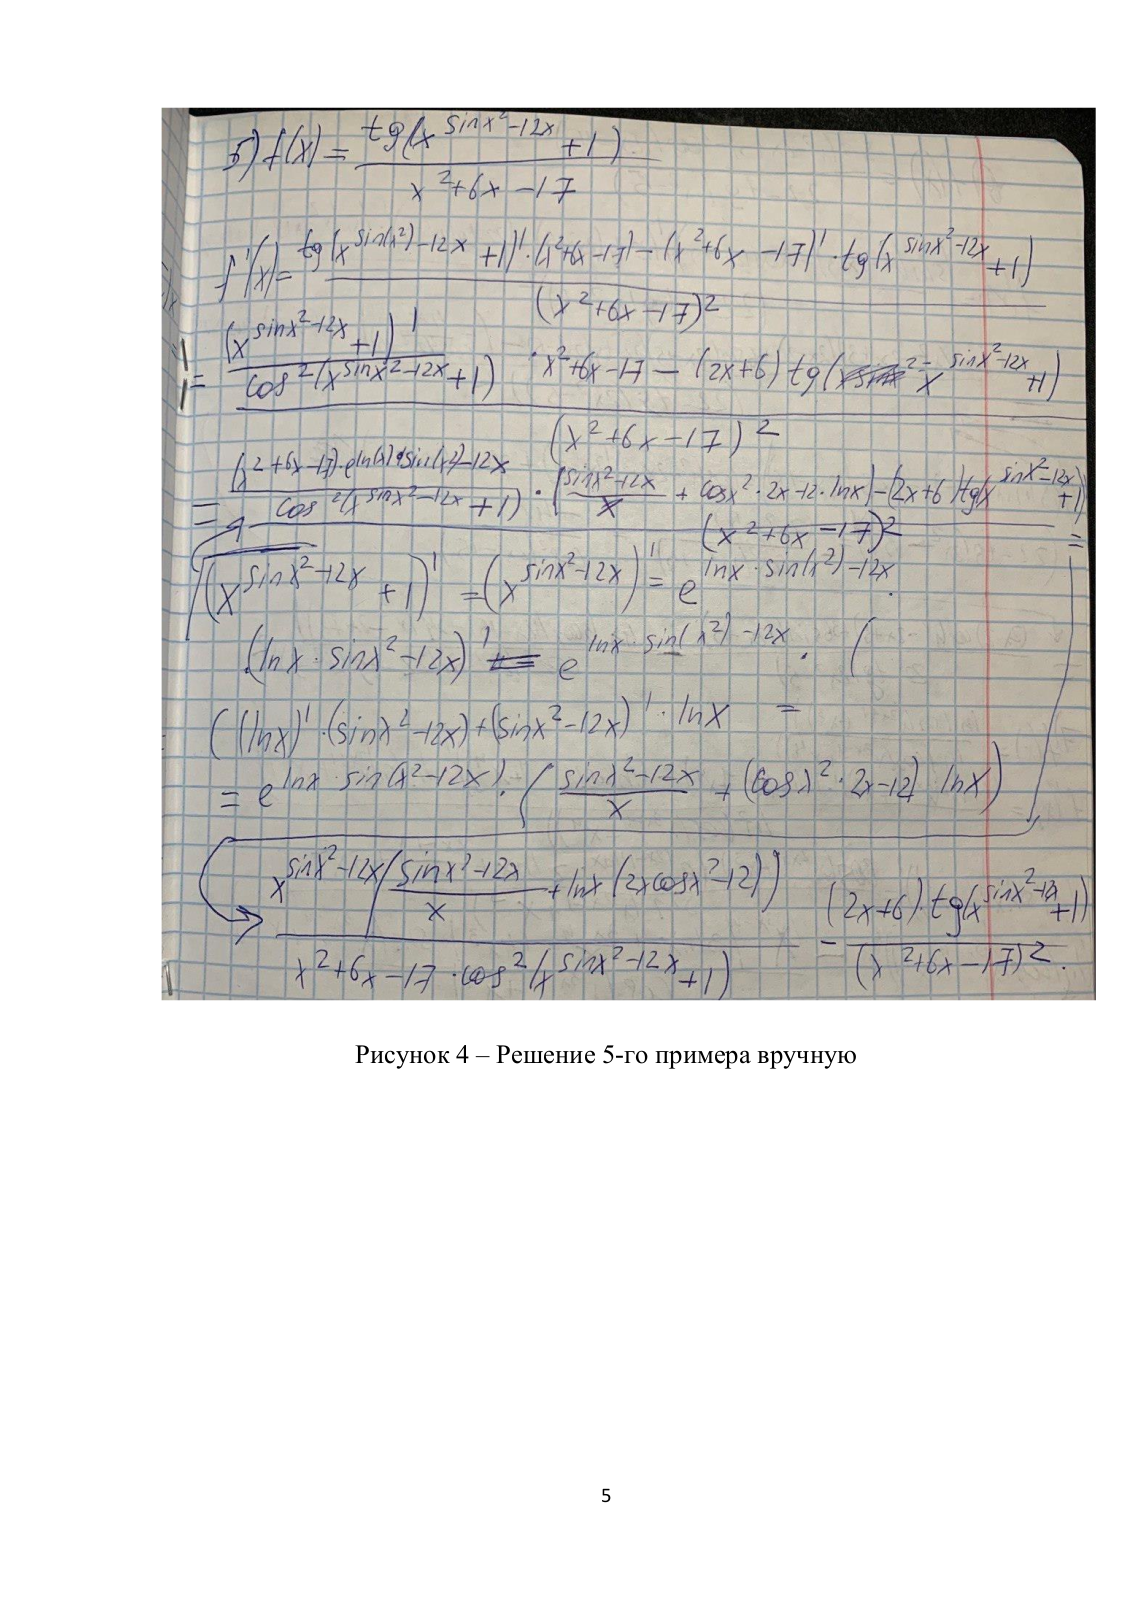 5) f(x) = tg(x^(sinx²-12x) +1) / x²+6x-17
f'(x) = tg(x^(sin(x²)-12x) +1)' · (x²+6x-17) - (x²+6x-17)' · tg(x^(sinx²-12x) +1) / (x²+6x-17)²
= (x^(sinx²-12x) +1)' / cos²(x^(sinx²-12x) +1) · x²+6x-17 - (2x+6) tg(x^(sinx²-12x) +1) / (x²+6x-17)²
= (x²+6x-17)·e^(ln(x)·sin(x²)-12x) / cos²(x^(sinx²-12x) +1) · (sinx²-12x / x + cosx²·2x-12·lnx) - (2x+6) tg(x^(sinx²-12x) +1) / (x²+6x-17)² =
(x^(sinx²-12x) +1)' = (x^(sinx²-12x))' = e^(lnx·sin(x²)-12x) ·
·(lnx · sinx²-12x)' = e^(lnx·sin(x²)-12x) · (
((lnx)'·(sinx²-12x)+(sinx²-12x)'·lnx =
= e^(lnx·sin(x²-12x)) · (sinx²-12x / x + (cosx²·2x-12) lnx)
x^(sinx²-12x) (sinx²-12x / x + lnx (2xcosx²-12)) / x²+6x-17·cos²(x^(sinx²-12x) +1) - (2x+6)·tg(x^(sinx²-12x) +1) / (x²+6x-17)².
Рисунок 4 – Решение 5-го примера вручную
5